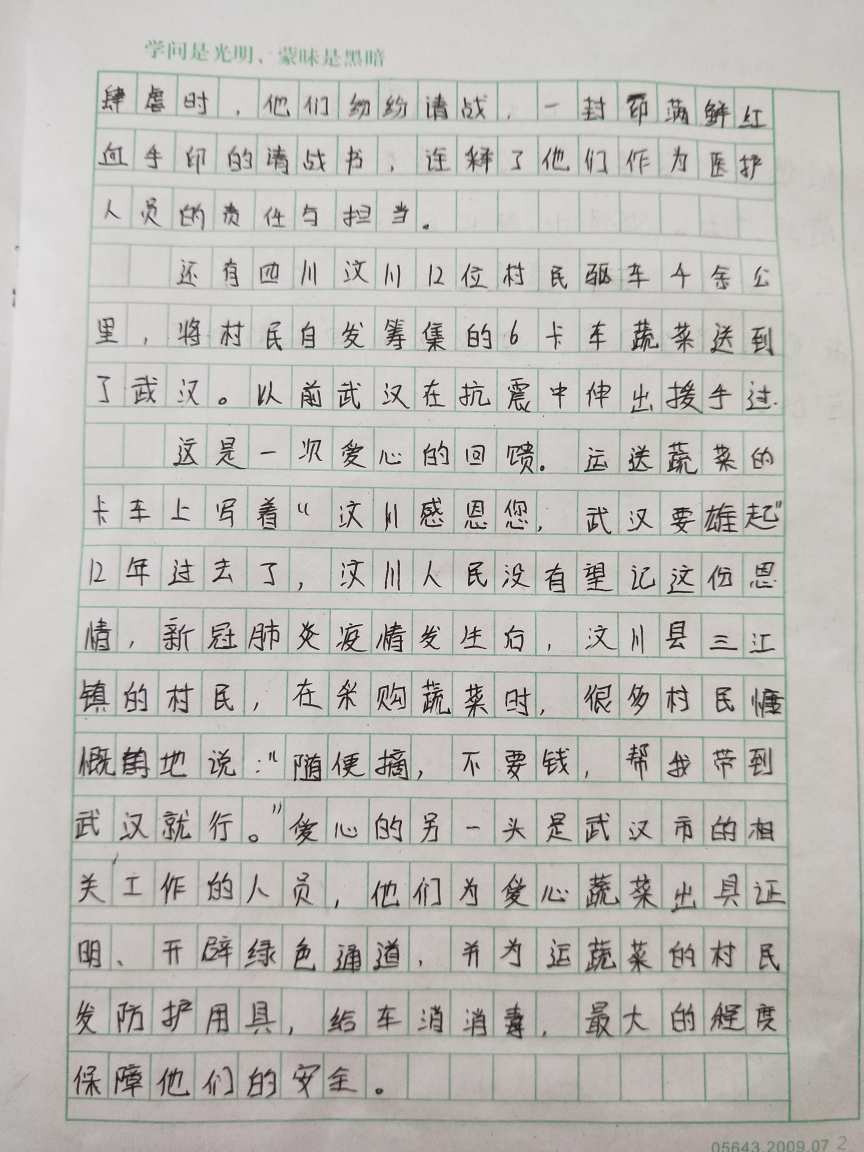 学问是光明、蒙昧是黑暗
肆虐时，他们纷纷请战，一封印满鲜红
血手印的请战书，诠释了他们作为医护
人员的责任与担当。
还有四川汶川12位村民驱车4余公
里，将村民自发筹集的6卡车蔬菜送到
了武汉。以前武汉在抗震中伸出援手过.
这是一次爱心的回馈。运送蔬菜的
卡车上写着“汶川感恩您，武汉要雄起”
12年过去了，汶川人民没有望记这份恩
情，新冠肺炎疫情发生后，汶川县三江
镇的村民，在采购蔬菜时，很多村民慷
慨的地说：“随便摘，不要钱，帮我带到
武汉就行。”爱心的另一头是武汉市的相
关工作的人员，他们为爱心蔬菜出具证
明、开辟绿色通道，并为运蔬菜的村民
发防护用具，给车消消毒，最大的程度
保障他们的安全。
05643.2009.07 2